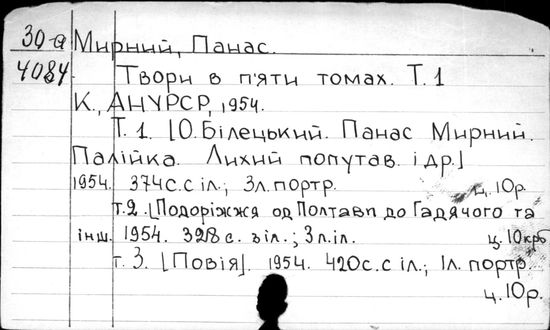 30-а Мирний, Панас.
4084. Твори в п'яти томах. Т. 1
К., АНУРСР, 1954.
Т. 1. [О. Білецький. Панас Мирний.
Палійка. Лихий попутав. і др.]
1954. 374 с. с іл.; 3л. портр. ц. 10р.
т. 2. [Подоріжжя од Полтави до Гадячого та
інш. 1954. 328 с. з іл.; 3 л. іл. ц. 10 крб
т. 3. [Повія]. 1954. 420 с. с іл.; 1л. портр.
ц. 10р.